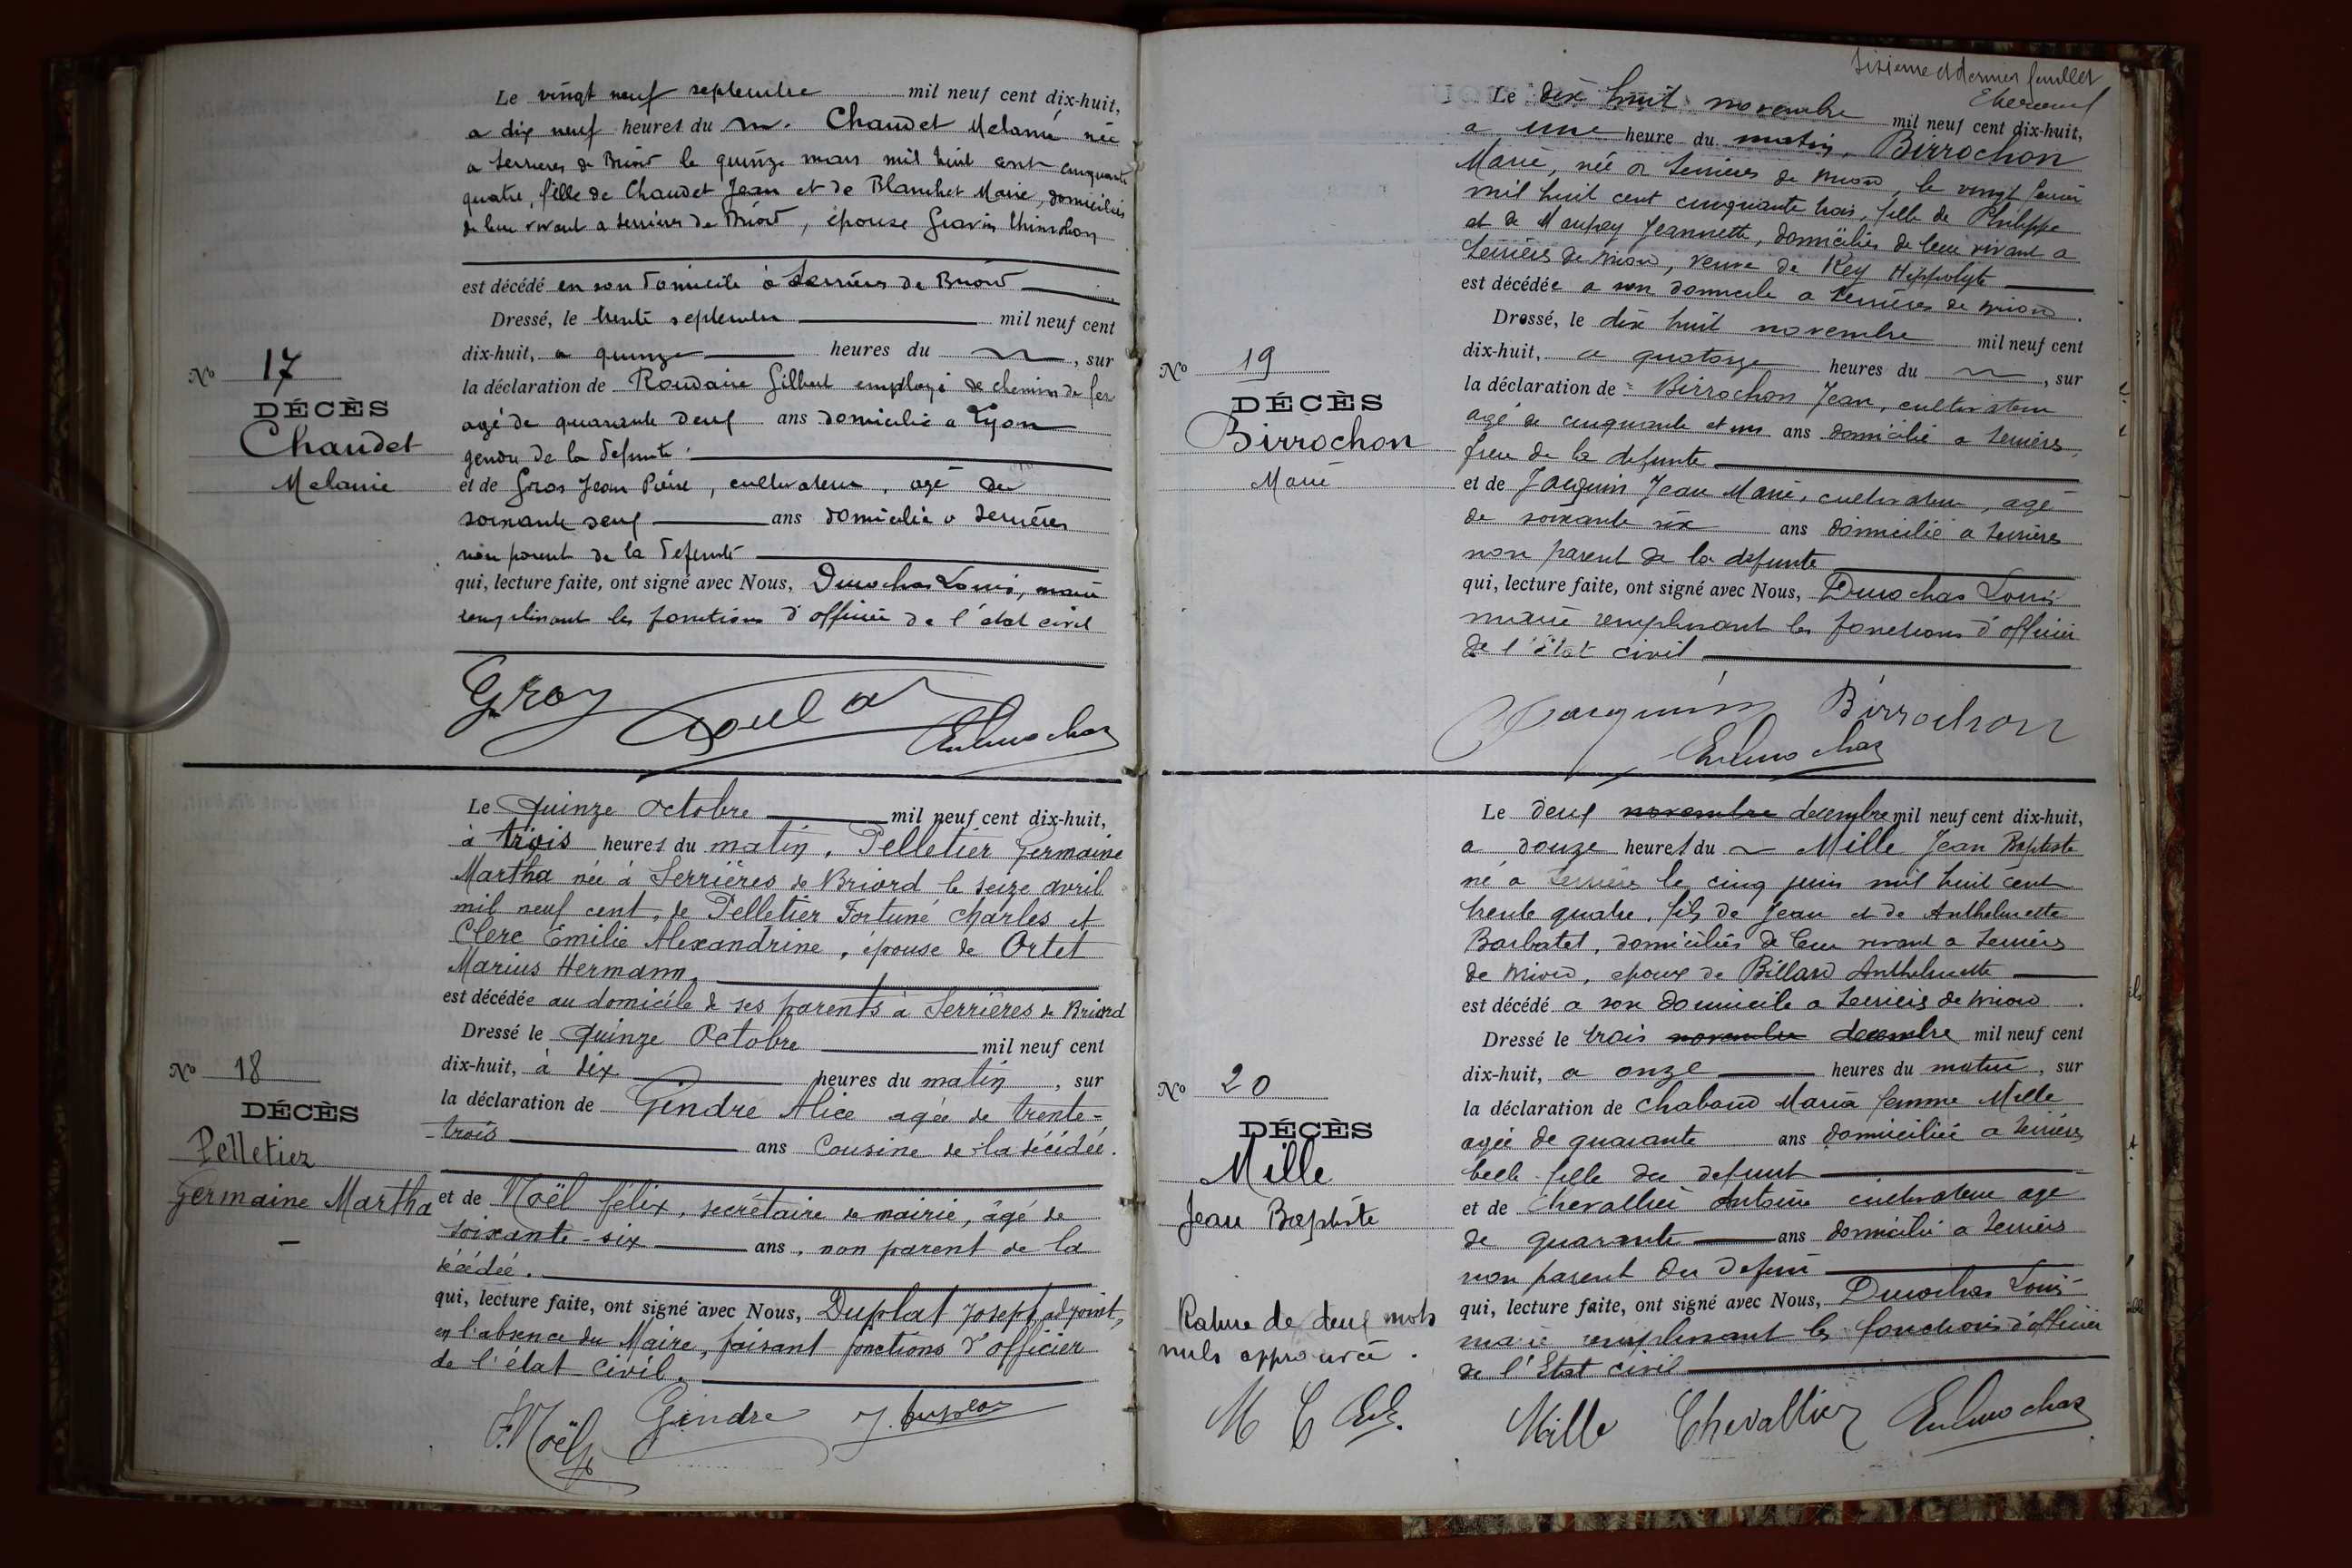 Le vingt neuf septembre mil neuf cent dix-huit,
a dix neuf heures du Chaudet Melanie née
a Serrieres de Briord le quinze mars mil huit cent cinquante
quatre, fille de Chaudet Jean et de Blanchet Marie, domiciliés
de leur vivant a Serrieres de Briord, épouse
est décédé en son domicile à Serrières de Briord
Dressé, le trente septembre mil neuf cent
dix-huit, a quinze heures du , sur
la déclaration de Roudaire Gilbert employé de chemin de fer
agé de quarante deux ans domicilié a Lyon
gendre de la defunte
et de Gros Jean Pierre, cultivateur, agé de
soixante deux ans domicilié a Serrières
non parent de la defunte
qui, lecture faite, ont signé avec Nous, Durochas Louis, maire
remplissant les fonctions d'officier de l'état civil
No 17
DÉCÈS
Chaudet
Melanie
Gros
Le quinze Octobre mil neuf cent dix-huit,
à trois heures du matin, Pelletier Germaine
Martha née à Serrières de Briord le seize avril
mil neuf cent, de Pelletier Fortuné Charles et
Clerc Emilie Alexandrine, épouse de Ortet
Marius Hermann,
est décédée au domicile de ses parents à Serrières de Briord
Dressé le quinze Octobre mil neuf cent
dix-huit, à dix heures du matin, sur
la déclaration de Gindre Alice agée de trente-
-trois ans Cousine de la décédée.
et de Noël félix, secrétaire de mairie, âgé de
soixante-six ans, non parent de la
décédée.
qui, lecture faite, ont signé avec Nous, Duplat Joseph adjoint,
en l'absence du Maire, faisant fonctions d'officier
de l'état civil.
No 18
DÉCÈS
Pelletier
Germaine Martha
F. Noël Gindre J. Duplat
Sixieme et dernier feuillet
Le dix huit novembre mil neuf cent dix-huit,
a une heure du matin, Birrochon
Marie, née a Serrieres de Briord, le vingt
mil huit cent cinquante trois, fille de Philippe
et de Maupey Jeannette, domiciliés de leur vivant a
Serrières de Briord, veuve de Rey Hippolyte
est décédée a son domicile a Serrieres de Briord.
Dressé, le dix huit novembre mil neuf cent
dix-huit, a quatorze heures du , sur
la déclaration de Birrochon Jean, cultivateur
agé de cinquante et un ans domicilié a Serrières,
frere de la defunte
et de Jacquin Jean Marie, cultivateur, agé
de soixante six ans domicilié a Serrières
non parent de la defunte
qui, lecture faite, ont signé avec Nous, Durochas Louis
maire remplissant les fonctions d'officier
de l'état civil
No 19
DÉCÈS
Birrochon
Marie
Jacquin Birrochon
Le deux novembre decembre mil neuf cent dix-huit,
a douze heures du Mille Jean Baptiste
né a Serrières le cinq juin mil huit cent
trente quatre, fils de Jean et de Anthelmette
Barbatet, domiciliés de leur vivant a Serrières
de Briord, epoux de Billard Anthelmette
est décédé a son domicile a Serrieres de Briord.
Dressé le trois novembre decembre mil neuf cent
dix-huit, a onze heures du matin, sur
la déclaration de Chabaud Maria femme Mille
agée de quarante ans domiciliée a Serrières
belle fille du defunt
et de Chevallier Antoine cultivateur age
de quarante ans domicilié a Serrières
non parent du defunt
qui, lecture faite, ont signé avec Nous, Durochas Louis
maire remplissant les fonctions d'officier
de l'Etat civil
No 20
DÉCÈS
Mille
Jean Baptiste
Rature de deux mots
nuls approuvée.
M C
Mille Chevallier